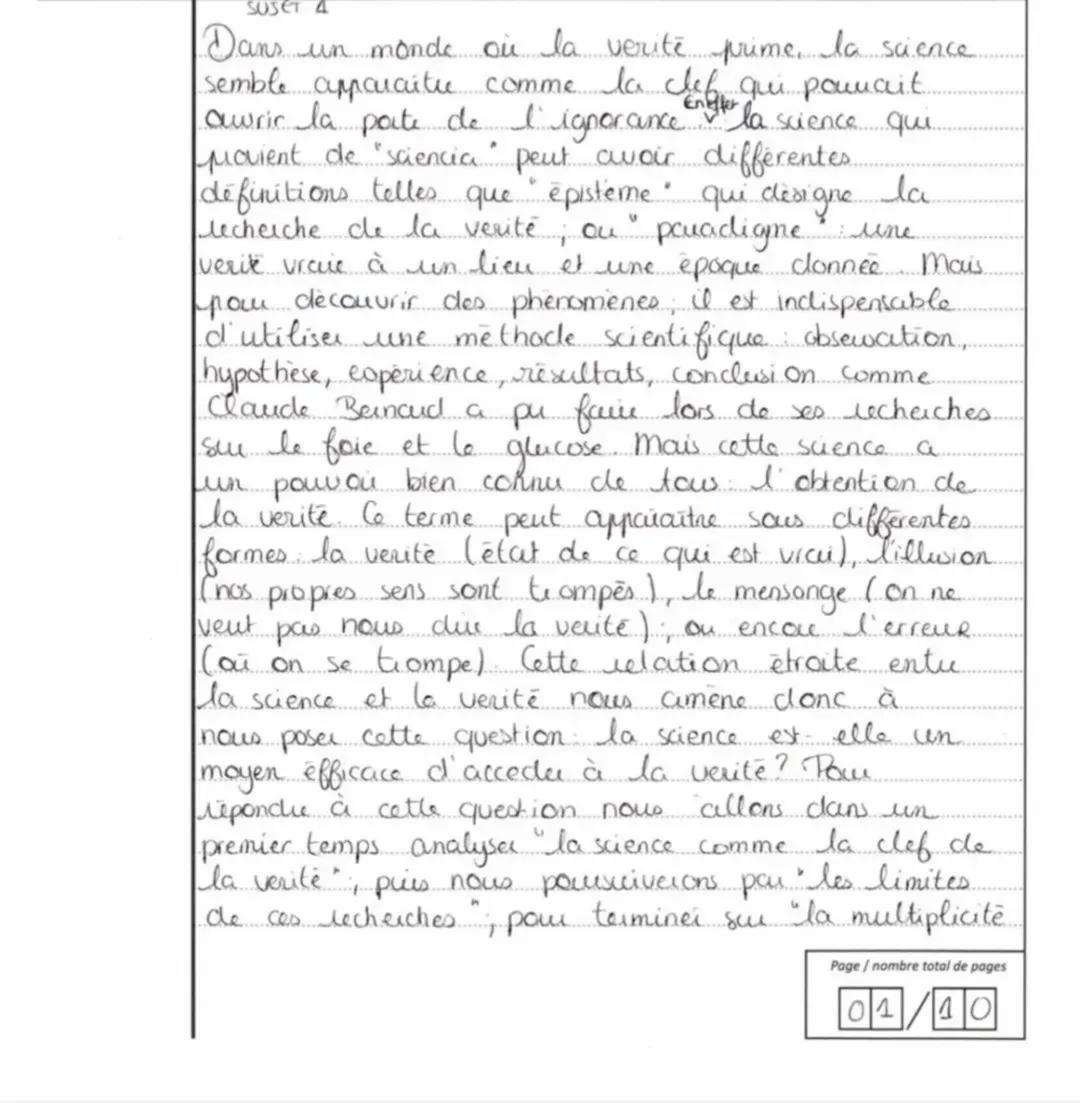 SUJET 1
Dans un monde où la verité prime, la science
semble apparaitre comme la clef qui pourrait
Eneffet
ouvrir la porte de l'ignorance. la science qui
provient de "sciencia" peut avoir différentes
définitions telles que "épistème" qui désigne la
recherche de la verité ; ou "paradigme" : une
verité vraie à un lieu et une époque donnée. Mais
pour découvrir des phénomènes, il est indispensable
d'utiliser une méthode scientifique : observation,
hypothèse, expérience, résultats, conclusion comme
Claude Bernard a pu faire lors de ses recherches
sur le foie et le glucose. Mais cette science a
un pouvoir bien connu de tous : l'obtention de
la verité. Ce terme peut apparaitre sous différentes
formes : la verité (état de ce qui est vrai), l'illusion
(nos propres sens sont trompés), le mensonge (on ne
veut pas nous dire la verité) ; ou encore l'erreur
(où on se trompe). Cette relation étroite entre
la science et la verité nous amène donc à
nous poser cette question : la science est-elle un
moyen éfficace d'acceder à la verité ? Pour
répondre à cette question nous allons dans un
premier temps analyser "la science comme la clef de
la verité", puis nous poursuiverons par "les limites
de ces recherches", pour terminer sur "la multiplicité
Page / nombre total de pages
01/10